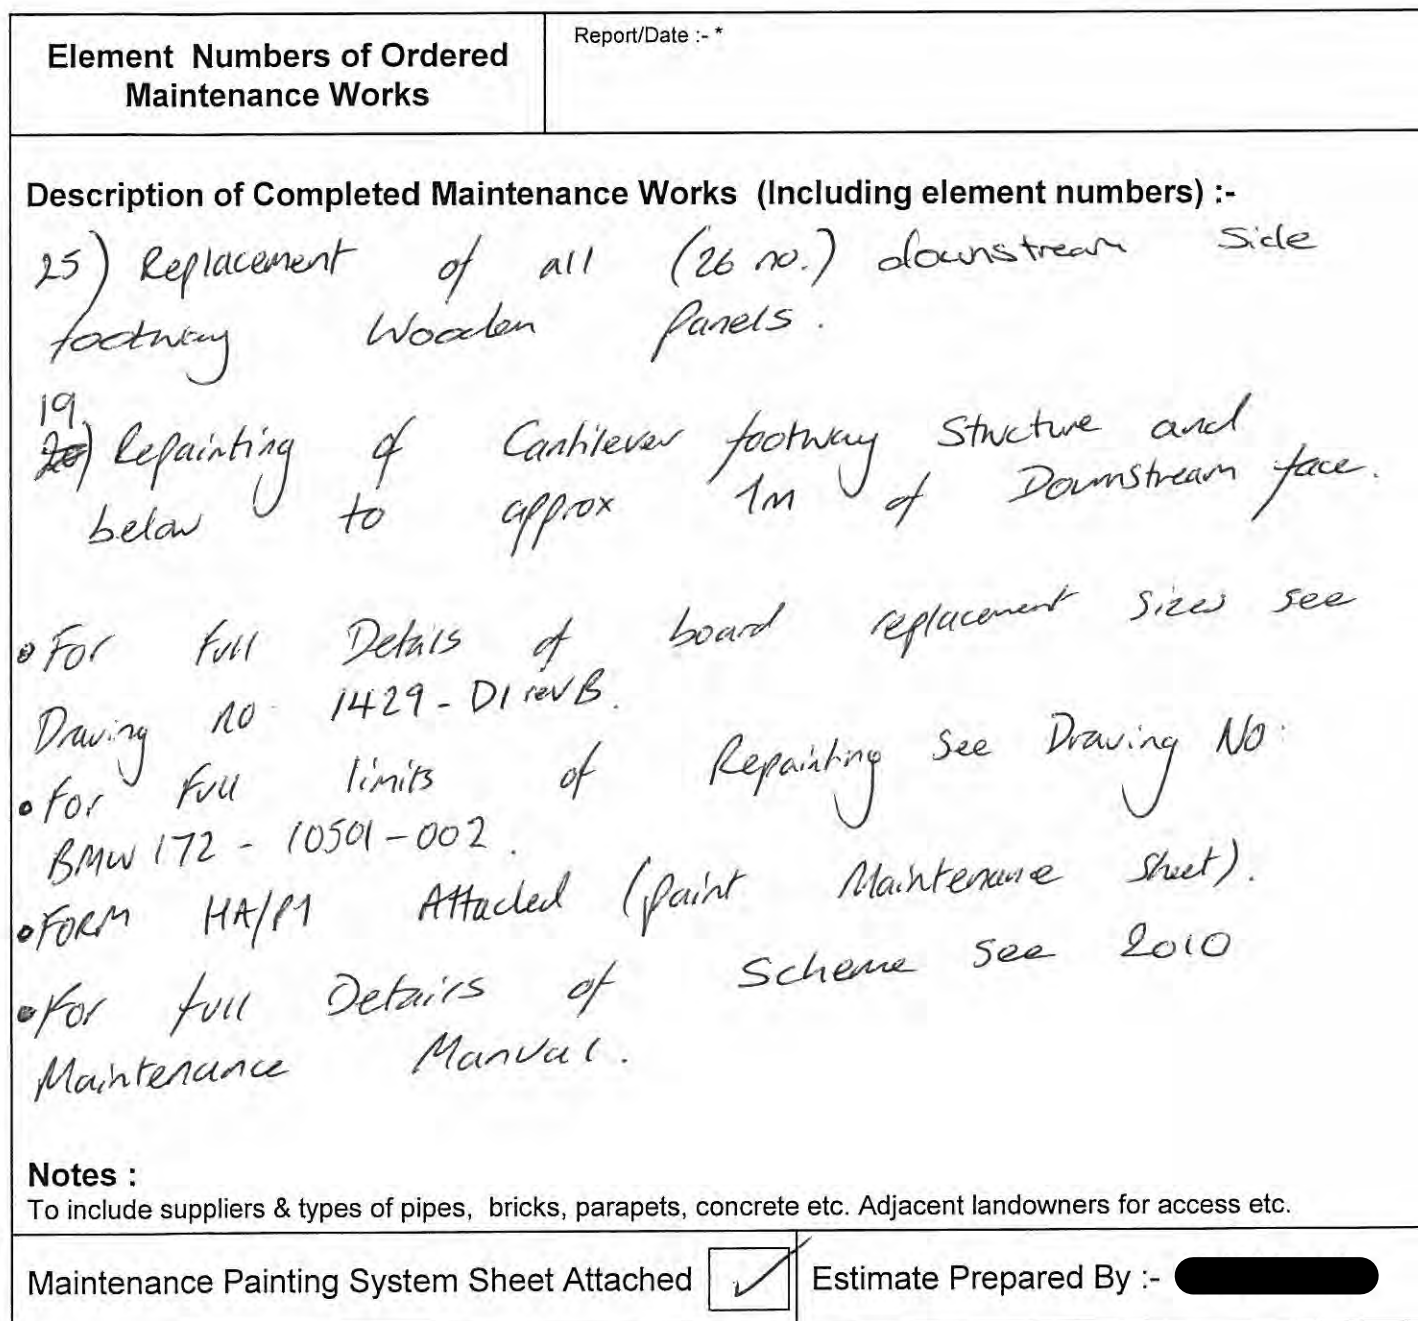 Element Numbers of Ordered
Maintenance Works
Report/Date :- *
Description of Completed Maintenance Works (Including element numbers) :-
25) Replacement of all (26 no.) downstream side
footway Wooden Panels.
19.
20) Repainting of Cantilever footway Structure and
below to approx 1m of Downstream face.
• For full Details of board replacement sizes see
Drawing no 1429 - D1 rev B.
• For full limits of Repainting see Drawing No:
BMW 172 - 10501 - 002.
• FORM HA/P1 Attached (paint Maintenance Sheet).
• For full Details of Scheme see 2010
Maintenance Manual.
Notes :
To include suppliers & types of pipes, bricks, parapets, concrete etc. Adjacent landowners for access etc.
Maintenance Painting System Sheet Attached ✓
Estimate Prepared By :-